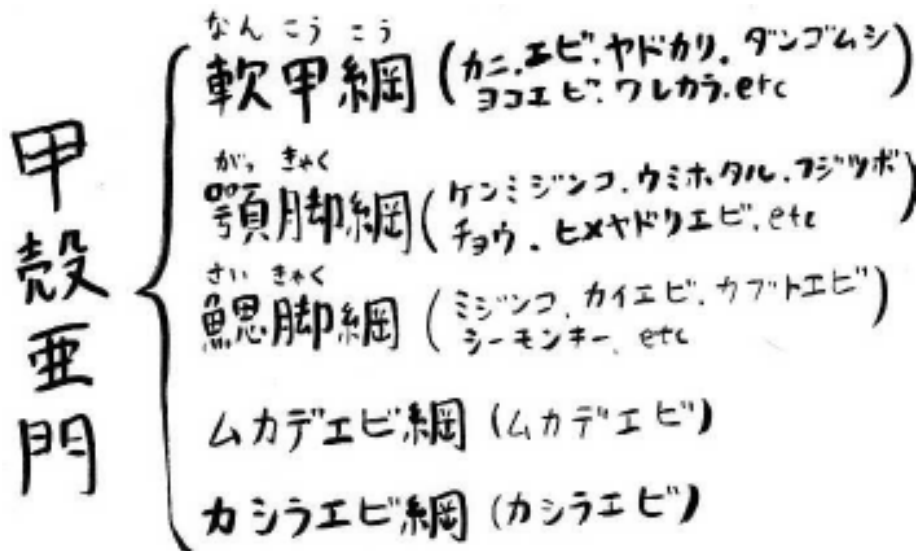 甲殻亜門
なんこうこう
軟甲綱 (カニ.エビ.ヤドカリ.ダンゴムシ
ヨコエビ.ワレカラ.etc)
がっきゃく
顎脚綱 (ケンミジンコ.ウミホタル.フジツボ
チョウ.ヒメヤドリエビ.etc)
さいきゃく
鰓脚綱 (ミジンコ.カイエビ.カブトエビ
シーモンキー.etc)
ムカデエビ綱 (ムカデエビ)
カシラエビ綱 (カシラエビ)